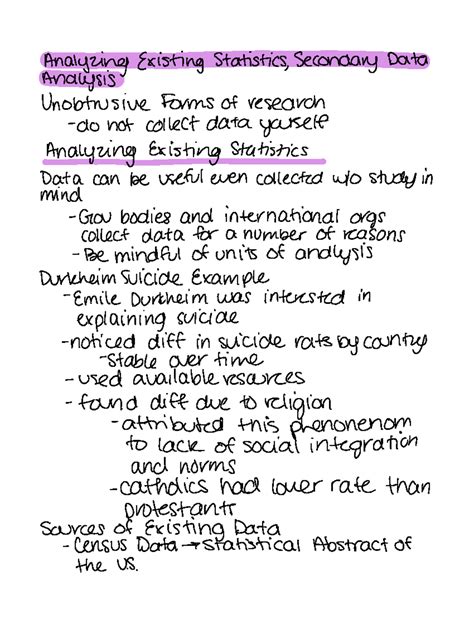 Analyzing Existing Statistics, Secondary Data
Analysis
Unobtrusive Forms of research
-do not collect data yourself
Analyzing Existing Statistics
Data can be useful even collected w/o study in
mind
-Gov bodies and international orgs
collect data for a number of reasons
-Be mindful of units of analysis
Durkheim Suicide Example
-Emile Durkheim was interested in
explaining suicide
-noticed diff in suicide rats by country
-stable over time
-used available resources
-found diff due to religion
-attributed this phenonenom
to lack of social integration
and norms
-catholics had lower rate than
protestants
Sources of Existing Data
-Census Data → Statistical Abstract of
the US.